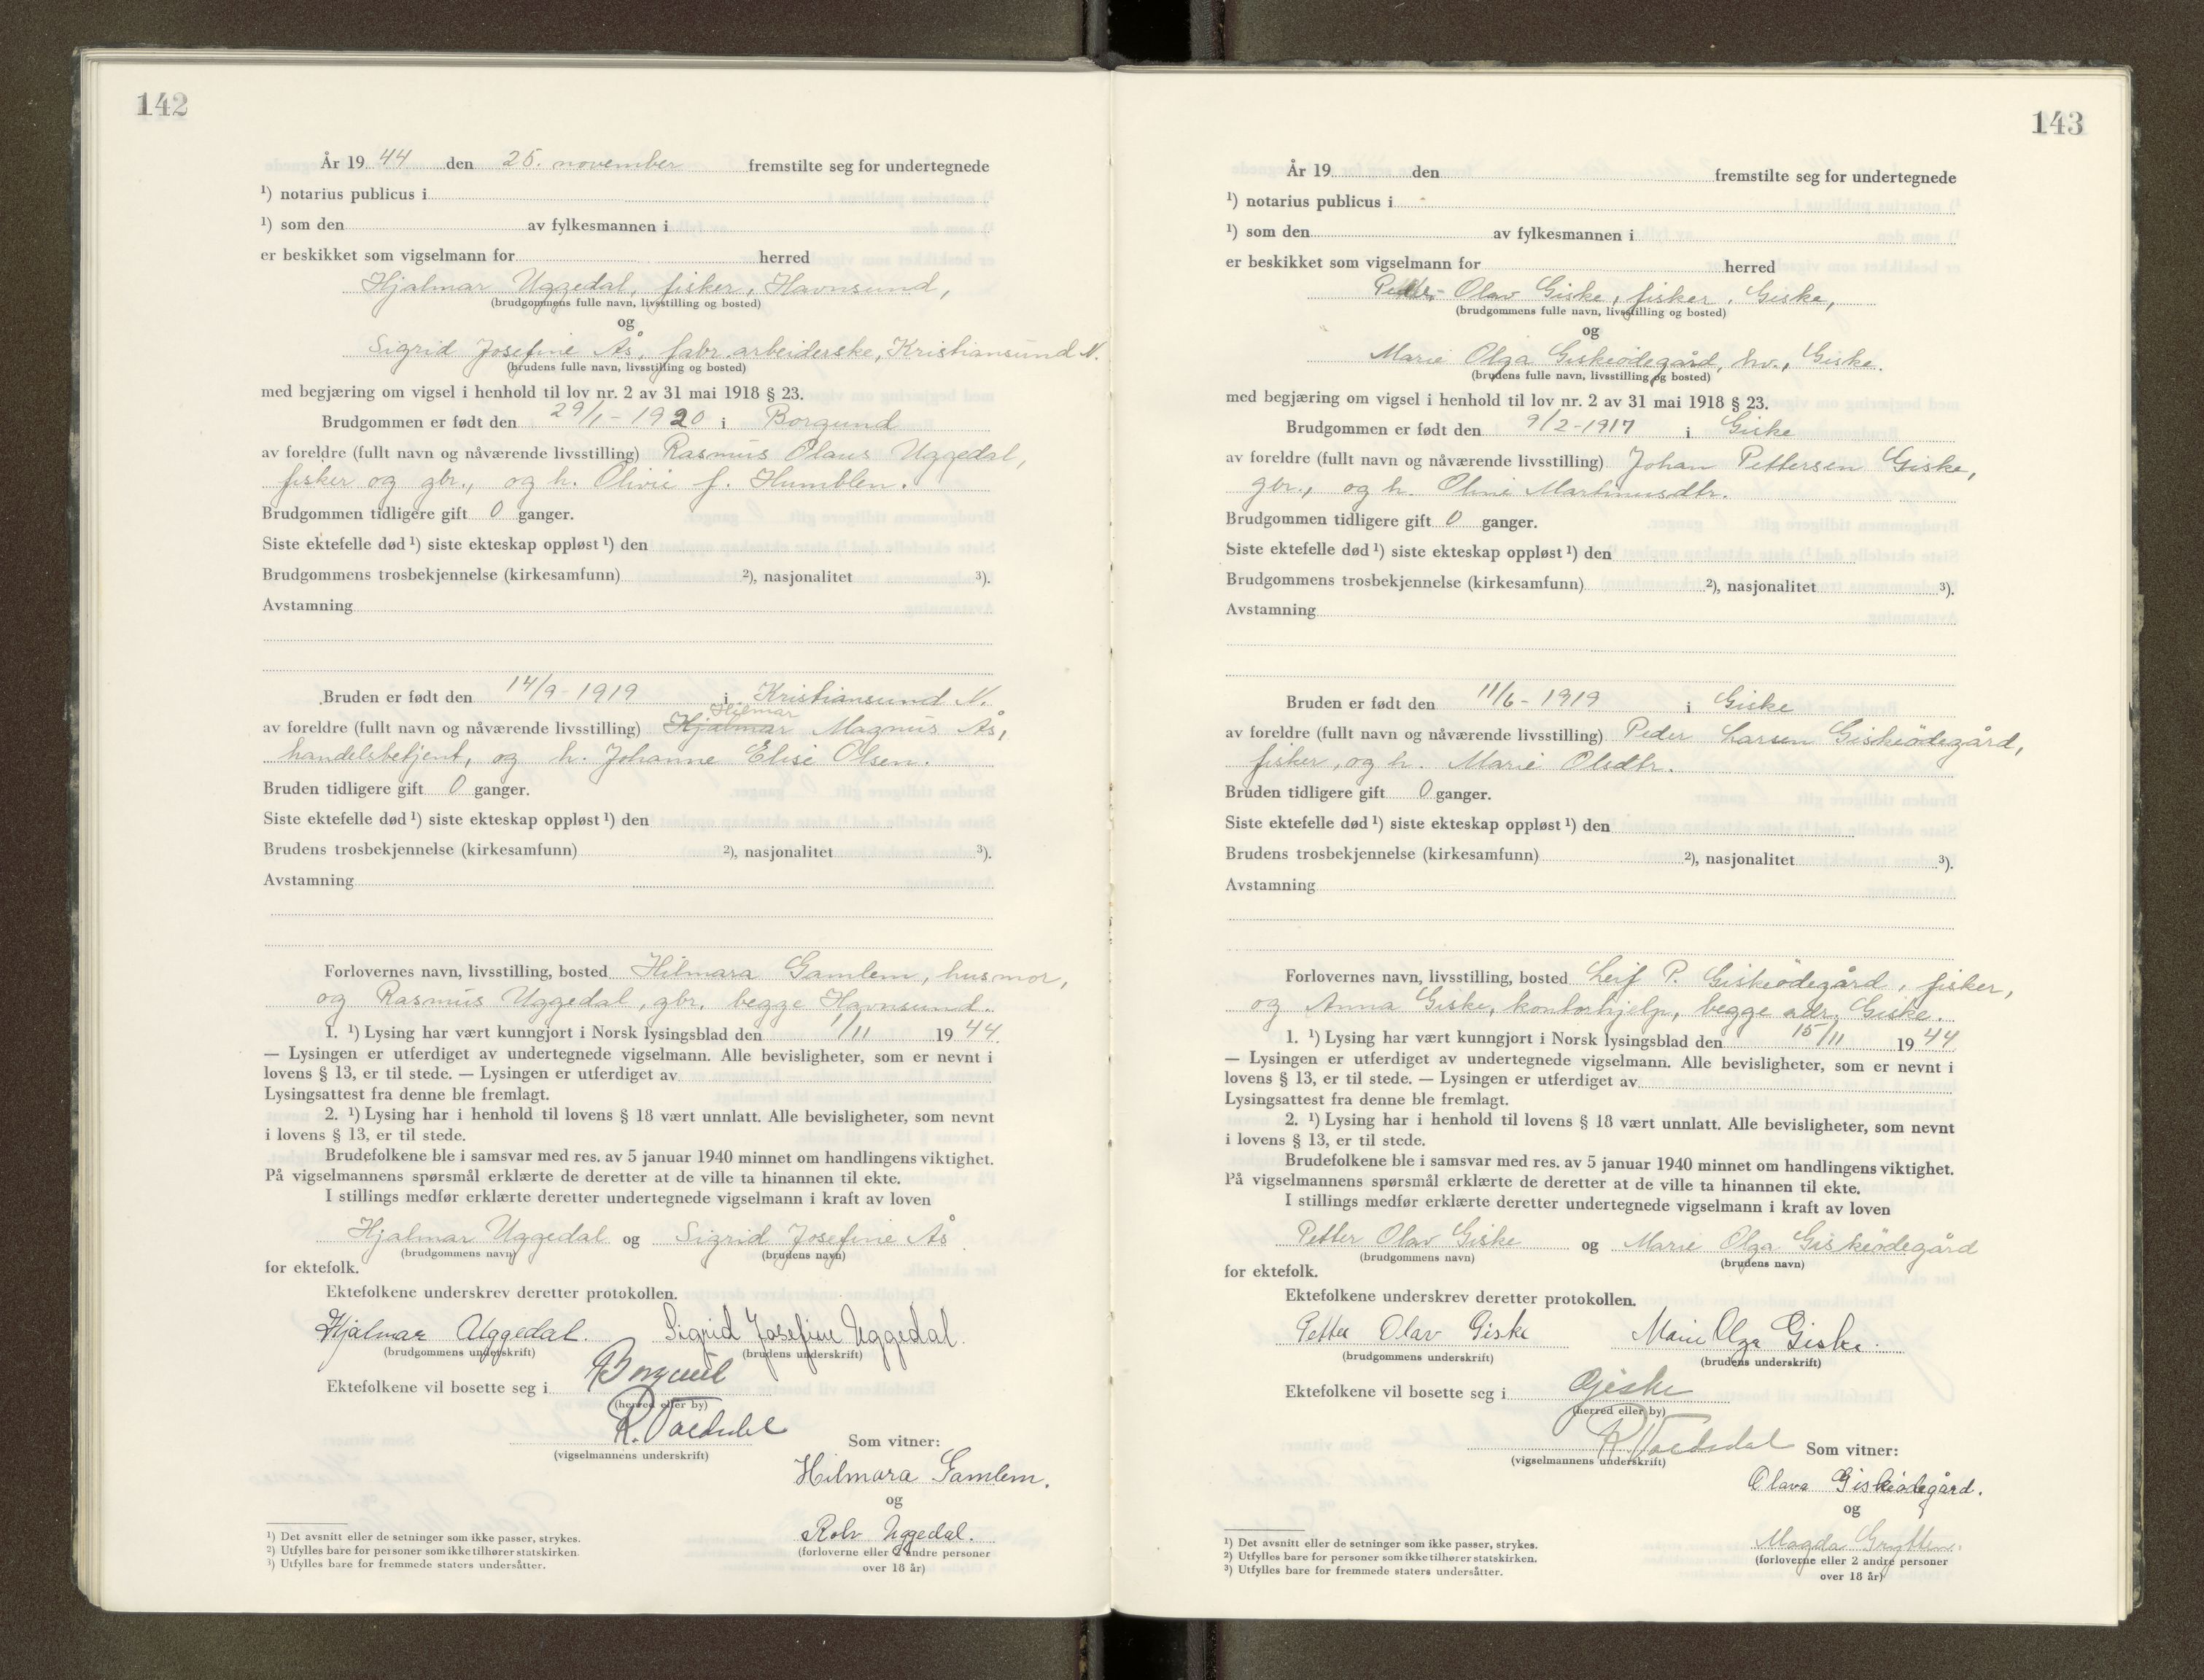 142
År 19 44 den 25. november fremstilte seg for undertegnede
¹) notarius publicus i
¹) som den av fylkesmannen i
er beskikket som vigselmann for herred
Hjalmar Uggedal, fisker, Havnsund,
(brudgommens fulle navn, livsstilling og bosted)
og
Sigrid Josefine Ås, fabr.arbeiderske, Kristiansund N.
(brudens fulle navn, livsstilling og bosted)
med begjæring om vigsel i henhold til lov nr. 2 av 31 mai 1918 § 23.
Brudgommen er født den 29/1-1920 i Borgund
av foreldre (fullt navn og nåværende livsstilling) Rasmus Olaus Uggedal,
fisker og gbr., og h. Olivie f. Humblen.
Brudgommen tidligere gift 0 ganger.
Siste ektefelle død ¹) siste ekteskap oppløst ¹) den
Brudgommens trosbekjennelse (kirkesamfunn) ²), nasjonalitet ³).
Avstamning
Bruden er født den 14/9-1919 i Kristiansund N.
Hilmar
av foreldre (fullt navn og nåværende livsstilling) Hjalmar Magnus Ås,
handelsbetjent, og h. Johanne Elise Olsen.
Bruden tidligere gift 0 ganger.
Siste ektefelle død ¹) siste ekteskap oppløst ¹) den
Brudens trosbekjennelse (kirkesamfunn) ²), nasjonalitet ³).
Avstamning
Forlovernes navn, livsstilling, bosted Hilmara Gamlem, husmor,
og Rasmus Uggedal, gbr. begge Havnsund.
1. ¹) Lysing har vært kunngjort i Norsk lysingsblad den 1/11 19 44.
— Lysingen er utferdiget av undertegnede vigselmann. Alle bevisligheter, som er nevnt i
lovens § 13, er til stede. — Lysingen er utferdiget av
Lysingsattest fra denne ble fremlagt.
2. ¹) Lysing har i henhold til lovens § 18 vært unnlatt. Alle bevisligheter, som nevnt
i lovens § 13, er til stede.
Brudefolkene ble i samsvar med res. av 5 januar 1940 minnet om handlingens viktighet.
På vigselmannens spørsmål erklærte de deretter at de ville ta hinannen til ekte.
I stillings medfør erklærte deretter undertegnede vigselmann i kraft av loven
Hjalmar Uggedal og Sigrid Josefine Ås
(brudgommens navn) (brudens navn)
for ektefolk.
Ektefolkene underskrev deretter protokollen.
Hjalmar Uggedal. Sigrid Josefine Uggedal.
(brudgommens underskrift) (brudens underskrift)
Ektefolkene vil bosette seg i Borgund
(herred eller by)
(vigselmannens underskrift)
Som vitner:
Hilmara Gamlem.
og
Rolv Uggedal.
(forloverne eller 2 andre personer
over 18 år)
¹) Det avsnitt eller de setninger som ikke passer, strykes.
²) Utfylles bare for personer som ikke tilhører statskirken.
³) Utfylles bare for fremmede staters undersåtter.
143
År 19 den fremstilte seg for undertegnede
¹) notarius publicus i
¹) som den av fylkesmannen i
er beskikket som vigselmann for herred
Petter Olav Giske, fisker, Giske,
(brudgommens fulle navn, livsstilling og bosted)
og
Marie Olga Giskeødegård, hv., Giske.
(brudens fulle navn, livsstilling og bosted)
med begjæring om vigsel i henhold til lov nr. 2 av 31 mai 1918 § 23.
Brudgommen er født den 9/2-1917 i Giske
av foreldre (fullt navn og nåværende livsstilling) Johan Pettersen Giske,
gbr., og h. Oline Martinusdtr.
Brudgommen tidligere gift 0 ganger.
Siste ektefelle død ¹) siste ekteskap oppløst ¹) den
Brudgommens trosbekjennelse (kirkesamfunn) ²), nasjonalitet ³).
Avstamning
Bruden er født den 11/6-1919 i Giske
av foreldre (fullt navn og nåværende livsstilling) Peder Larsen Giskeødegård,
fisker, og h. Marie Olsdtr.
Bruden tidligere gift 0 ganger.
Siste ektefelle død ¹) siste ekteskap oppløst ¹) den
Brudens trosbekjennelse (kirkesamfunn) ²), nasjonalitet ³).
Avstamning
Forlovernes navn, livsstilling, bosted Leif P. Giskeødegård, fisker,
og Anna Giske, kontorhjelp, begge adr. Giske.
1. ¹) Lysing har vært kunngjort i Norsk lysingsblad den 15/11 19 44
— Lysingen er utferdiget av undertegnede vigselmann. Alle bevisligheter, som er nevnt i
lovens § 13, er til stede. — Lysingen er utferdiget av
Lysingsattest fra denne ble fremlagt.
2. ¹) Lysing har i henhold til lovens § 18 vært unnlatt. Alle bevisligheter, som nevnt
i lovens § 13, er til stede.
Brudefolkene ble i samsvar med res. av 5 januar 1940 minnet om handlingens viktighet.
På vigselmannens spørsmål erklærte de deretter at de ville ta hinannen til ekte.
I stillings medfør erklærte deretter undertegnede vigselmann i kraft av loven
Petter Olav Giske og Marie Olga Giskeødegård
(brudgommens navn) (brudens navn)
for ektefolk.
Ektefolkene underskrev deretter protokollen.
Petter Olav Giske Marie Olga Giske.
(brudgommens underskrift) (brudens underskrift)
Ektefolkene vil bosette seg i Giske
(herred eller by)
(vigselmannens underskrift)
Som vitner:
Olava Giskeødegård.
og
Magda Grytten.
(forloverne eller 2 andre personer
over 18 år)
¹) Det avsnitt eller de setninger som ikke passer, strykes.
²) Utfylles bare for personer som ikke tilhører statskirken.
³) Utfylles bare for fremmede staters undersåtter.